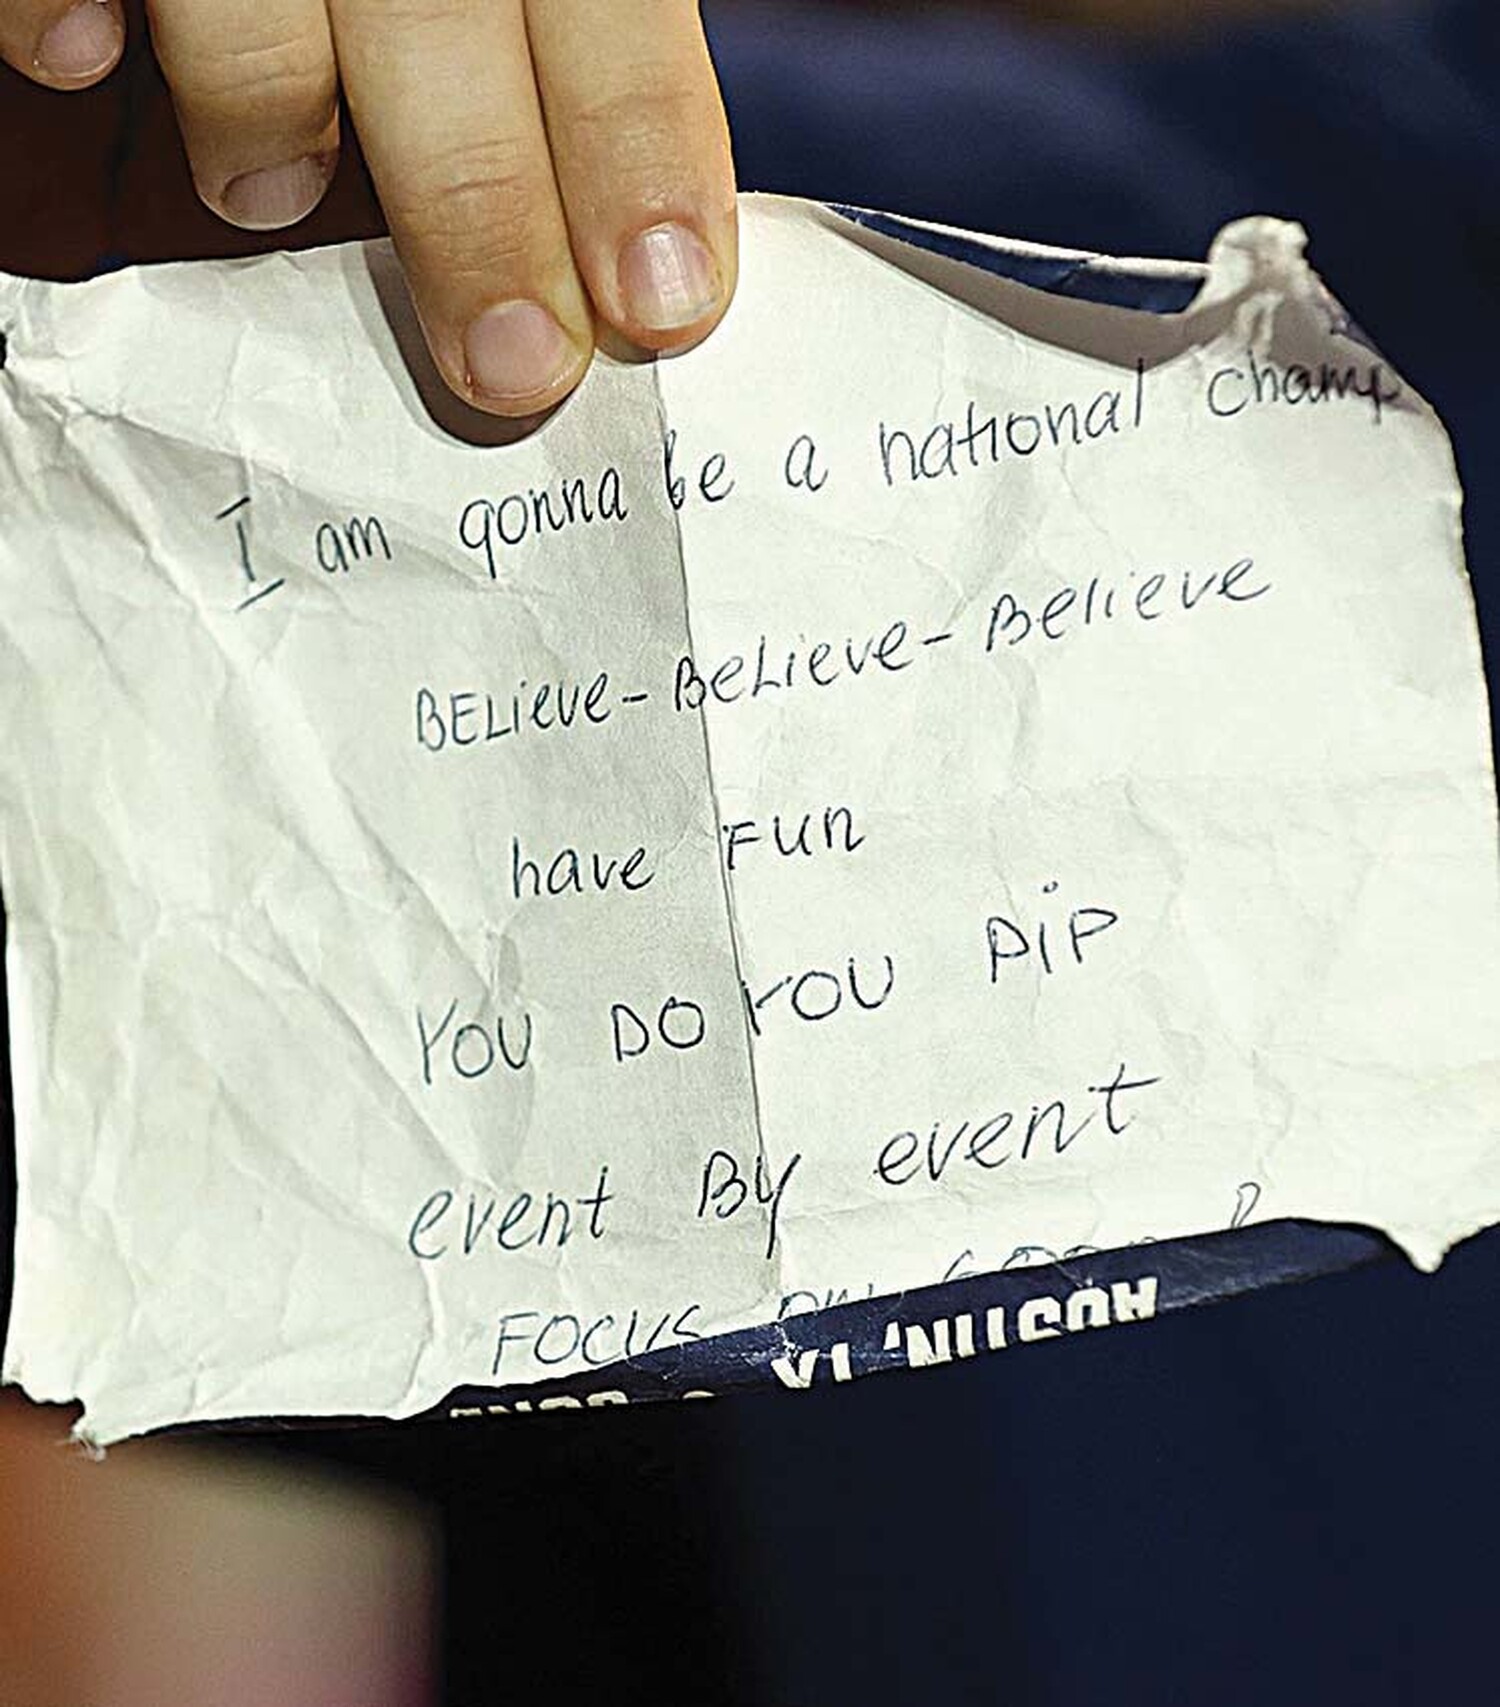 I am gonna be a national champ
BELieve-BeLieve-Believe
have FUN
YOU DO YOU PiP
event By event
FOCUS ON
AUSTIN, TX